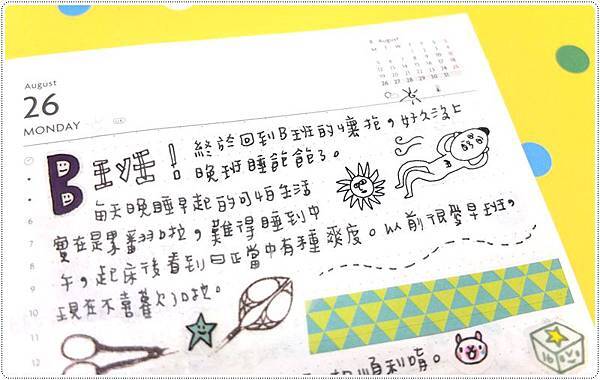 August
26
MONDAY
8 August
M T W T F S S
B班!終於回到B班的懷抱,好久沒上
晚班睡飽飽了。
每天晚睡早起的可怕生活
實在是累番羽口拉,難得睡到中
午,起床後看到日正當中有種爽度。以前很愛早班,
現在不喜歡了口拉。
順利唷。
6
7
8
9
10
11
12
16